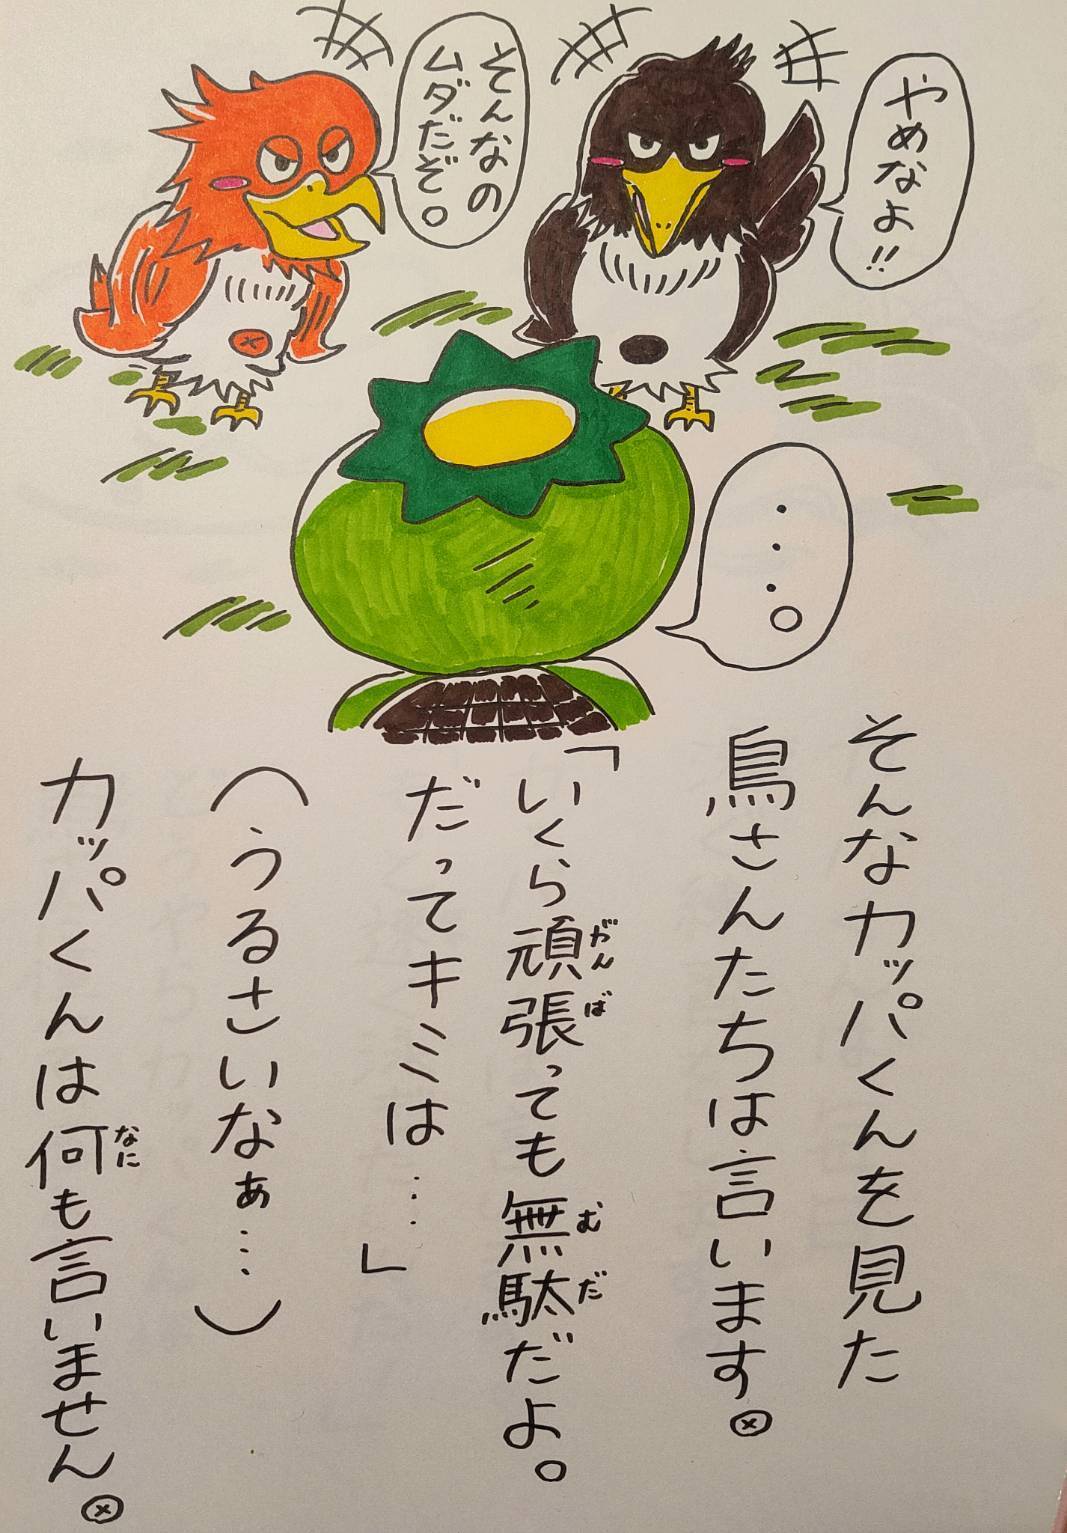 やめなよ!!
そんなの
ムダだぞ。
・・・。
そんなカッパくんを見た
鳥さんたちは言います。
「いくら頑張っても無駄だよ。
がんば
むだ
だってキミは…」
(うるさいなぁ…)
カッパくんは何も言いません。
なに